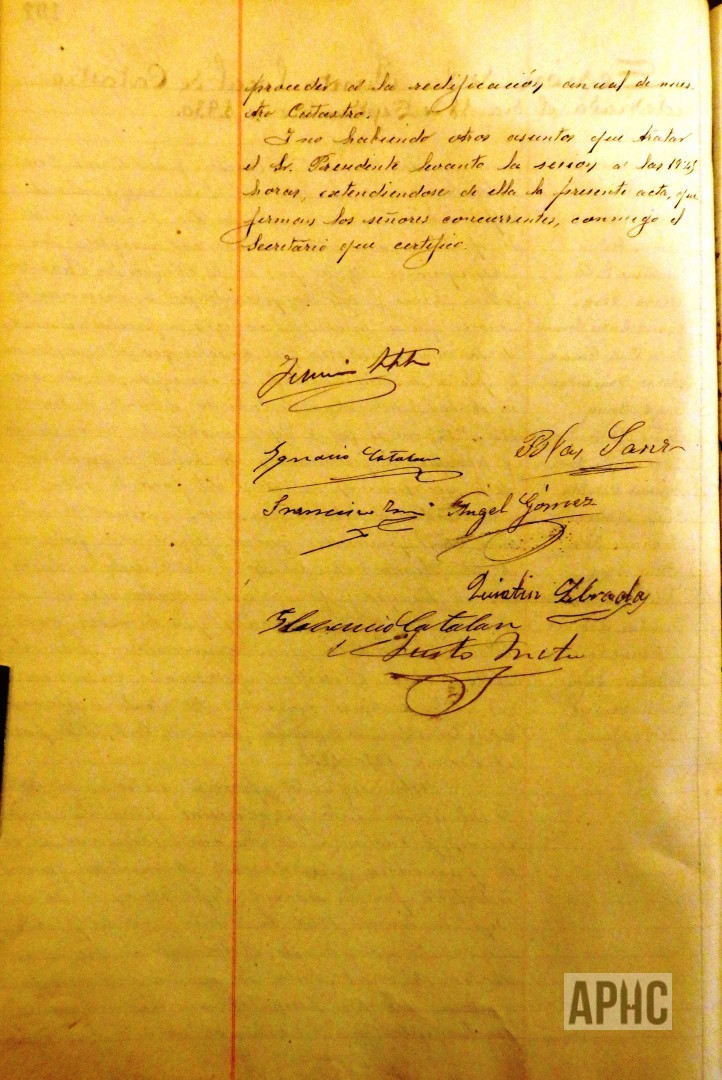 proceder a la rectificación anual de nues-
tro Catastro.
I no habiendo otros asuntos que tratar
el Sr. Presidente levanto la sesion a las 19'45
horas, extendiendose de ella la presente acta, que
firman los señores concurrentes, conmigo el
Secretario que certifico.
Ignacio Catalan
Blas Sanz
Francisco
Angel Gómez
Quintin
Florencio Catalan
Justo
APHC